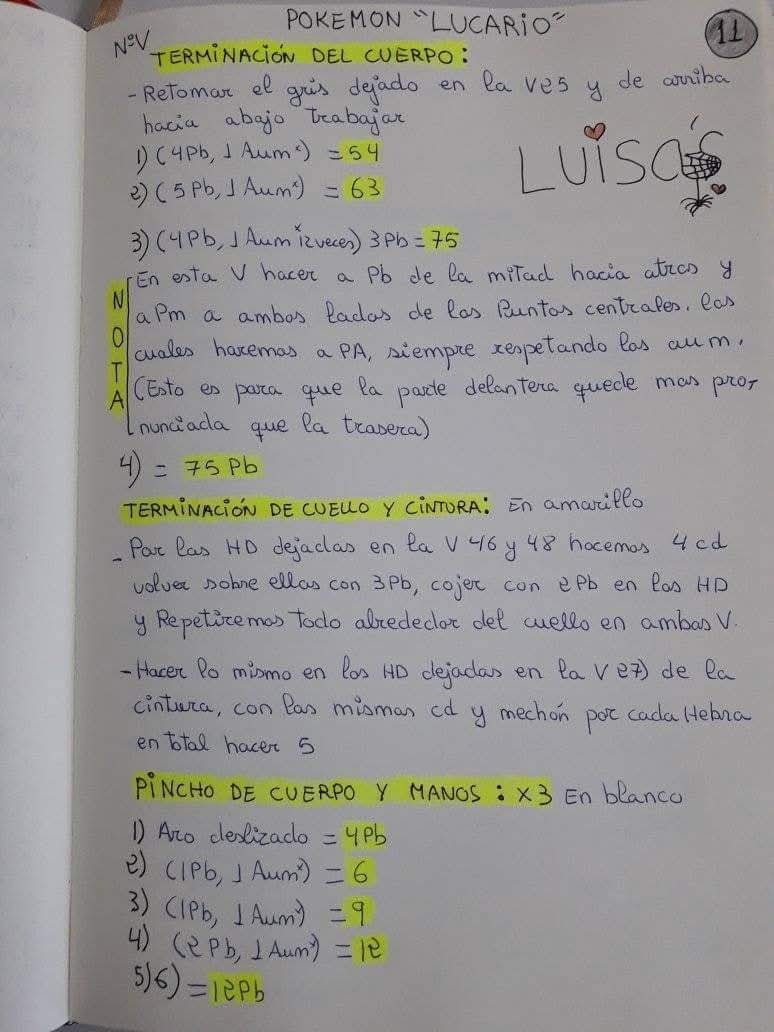 POKEMON "LUCARIO"
11
NºV
TERMINACIÓN DEL CUERPO:
- Retomar el gris dejado en la V25 y de arriba
hacia abajo trabajar
1) (4Pb, 1 Aumˣ) = 54
2) (5Pb, 1 Aumˣ) = 63
LUISA'S
3) (4Pb, 1 Aumˣ 12 veces) 3Pb = 75
NOTA
En esta V hacer a Pb de la mitad hacia atras y
a Pm a ambos lados de los Puntos centrales, los
cuales haremos a PA, siempre respetando los aum.
(Esto es para que la parte delantera quede mas pro-
nunciada que la trasera)
4) = 75 Pb
TERMINACIÓN DE CUELLO Y CINTURA: En amarillo
- Por las HD dejadas en la V 46 y 48 hacemos 4 cd
volver sobre ellas con 3Pb, cojer con 2Pb en las HD
y Repetiremos Todo alrededor del cuello en ambas V.
- Hacer lo mismo en las HD dejadas en la V 27) de la
cintura, con las mismas cd y mechón por cada Hebra
en total hacer 5
PINCHO DE CUERPO Y MANOS: X3 En blanco
1) Aro deslizado = 4Pb
2) (1Pb, 1 Aumˣ) = 6
3) (1Pb, 1 Aumˣ) = 9
4) (2Pb, 1 Aumˣ) = 12
5)6) = 12Pb